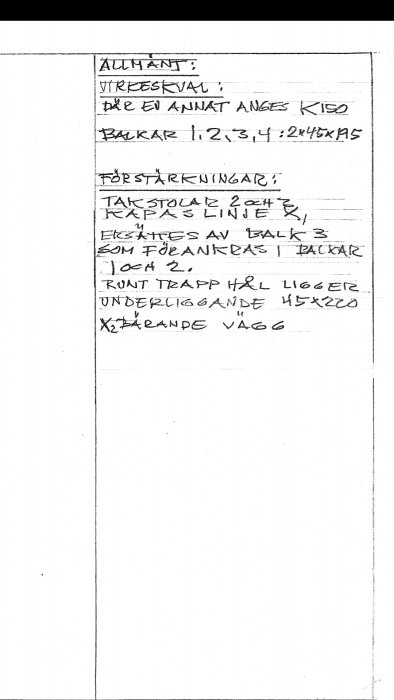 ALLMÄNT:
VIRKESKVAL:
DÄR EJ ANNAT ANGES K150
BALKAR 1, 2, 3, 4 : 2x45x195
FÖRSTÄRKNINGAR:
TAKSTOLAR 2 OCH 3
KAPAS LINJE X1
ERSÄTTES AV BALK 3
SOM FÖRANKRAS I BALKAR
1 OCH 2.
RUNT TRAPPHÅL LIGGER
UNDERLIGGANDE 45x220
X2 BÄRANDE VÄGG